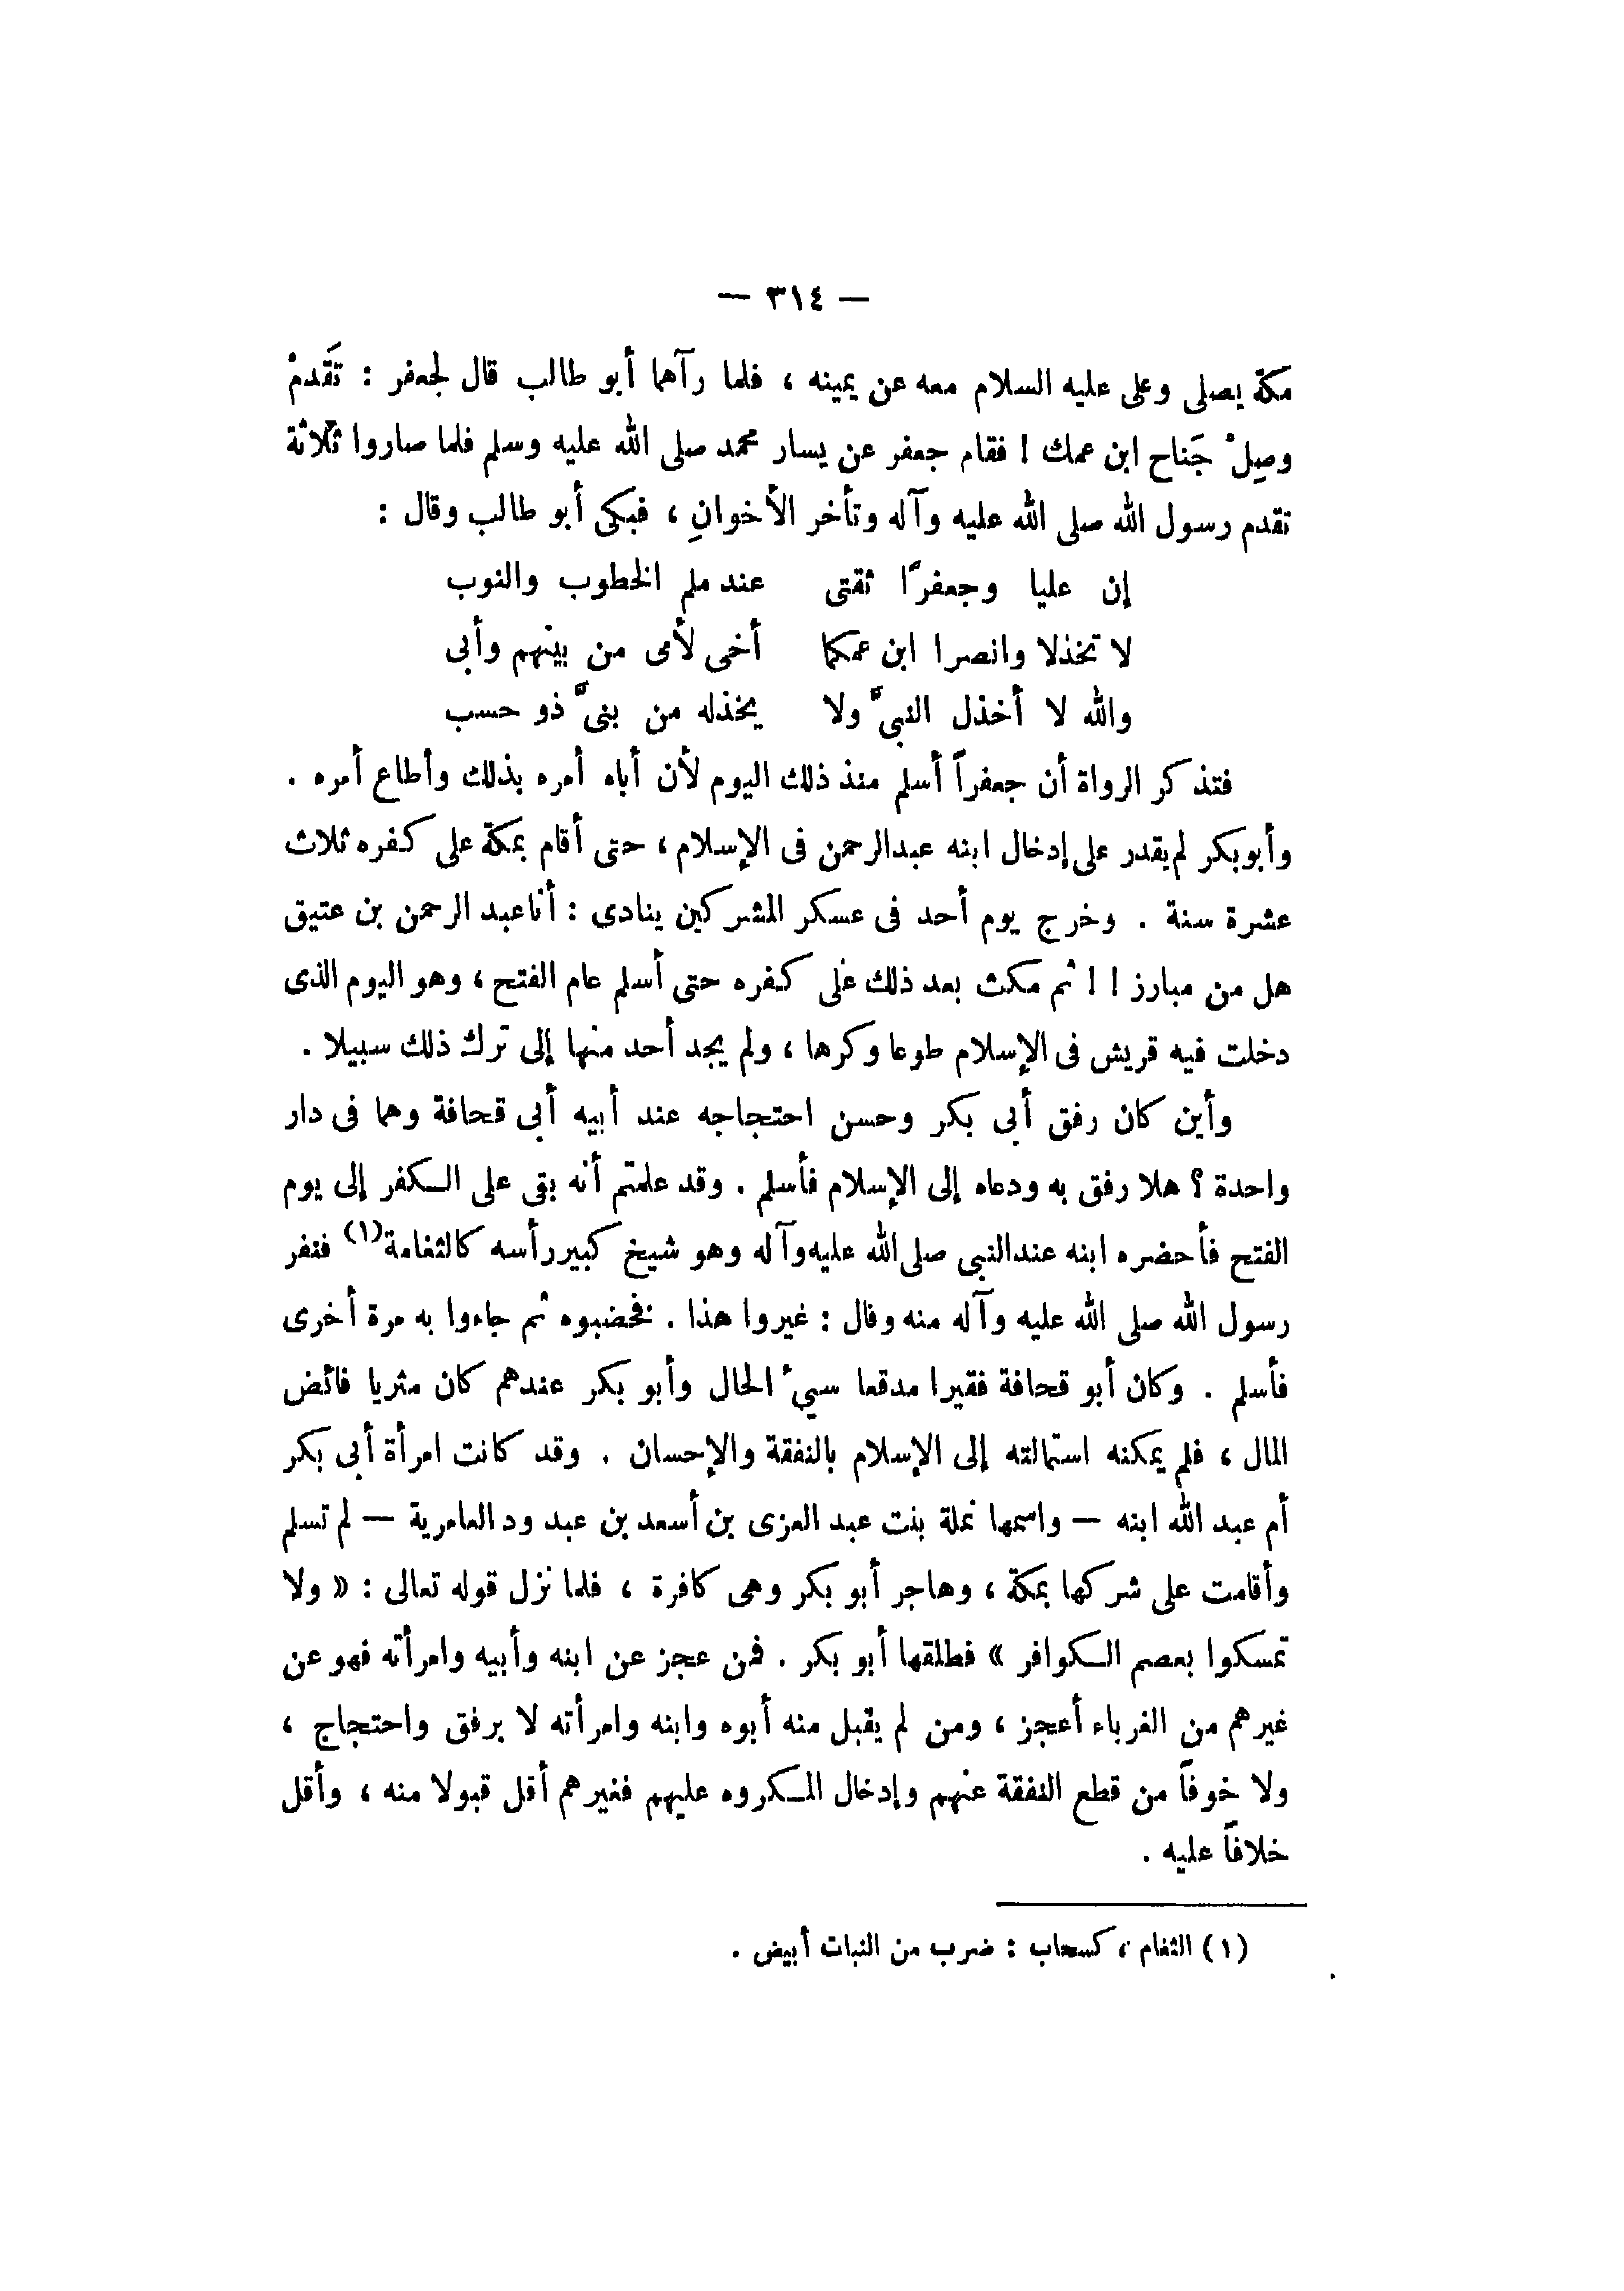 — ٣١٤ —
مكة يصلى وعلى عليه السلام معه عن يمينه ، فلما رآهما أبو طالب قال لجعفر : تَقَدمْ
وصِلْ جَناح ابن عمك ! فقام جعفر عن يسار محمد صلى الله عليه وسلم فلما صاروا ثلاثة
تقدم رسول الله صلى الله عليه وآله وتأخر الأخوانِ ، فبكى أبو طالب وقال :
إن عليا وجعفرًا ثقتى عند ملم الخطوب والنوب
لا تخذلا وانصرا ابن عمكما أخى لأمى من بينهم وأبى
والله لا أخذل النبىَّ ولا يخذله من بنىَّ ذو حسب
فتذكر الرواة أن جعفراً أسلم منذ ذلك اليوم لأن أباه أمره بذلك وأطاع أمره .
وأبوبكر لم يقدر على إدخال ابنه عبدالرحمن فى الإسلام ، حتى أقام بمكة على كفره ثلاث
عشرة سنة . وخرج يوم أحد فى عسكر المشركين ينادى : أنا عبد الرحمن بن عتيق
هل من مبارز ! ! ثم مكث بعد ذلك على كفره حتى أسلم عام الفتح ، وهو اليوم الذى
دخلت فيه قريش فى الإسلام طوعا وكرها ، ولم يجد أحد منها إلى ترك ذلك سبيلا .
وأين كان رفق أبى بكر وحسن احتجاجه عند أبيه أبى قحافة وهما فى دار
واحدة ؟ هلا رفق به ودعاه إلى الإسلام فأسلم . وقد علمتم أنه بقى على الكفر إلى يوم
الفتح فأحضره ابنه عندالنبى صلى الله عليه وآله وهو شيخ كبير رأسه كالثغامة(١) فنفر
رسول الله صلى الله عليه وآله منه وقال : غيروا هذا . فخضبوه ثم جاءوا به مرة أخرى
فأسلم . وكان أبو قحافة فقيرا مدقعا سيئ الحال وأبو بكر عندهم كان مثريا فائض
المال ، فلم يمكنه استمالته إلى الإسلام بالنفقة والإحسان . وقد كانت امرأة أبى بكر
أم عبد الله ابنه — واسمها نملة بنت عبد العزى بن أسعد بن عبد ود العامرية — لم تسلم
وأقامت على شركها بمكة ، وهاجر أبو بكر وهى كافرة ، فلما نزل قوله تعالى : « ولا
تمسكوا بعصم الكوافر » فطلقها أبو بكر . فمن عجز عن ابنه وأبيه وامرأته فهو عن
غيرهم من الغرباء أعجز ، ومن لم يقبل منه أبوه وابنه وامرأته لا برفق واحتجاج ،
ولا خوفاً من قطع النفقة عنهم وإدخال المكروه عليهم فغيرهم أقل قبولا منه ، وأقل
خلافاً عليه .
(١) الثغام ، كسحاب : ضرب من النبات أبيض .